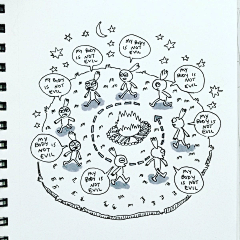 MY BODY
IS NOT
EVIL
MY BODY
IS NOT
EVIL
MY
BODY IS
NOT EVIL
MY BODY
IS NOT
EVIL
MY BODY
IS NOT
EVIL
MY BODY
IS NOT
EVIL
MY BODY
IS NOT
EVIL
MY BODY
IS NOT
EVIL